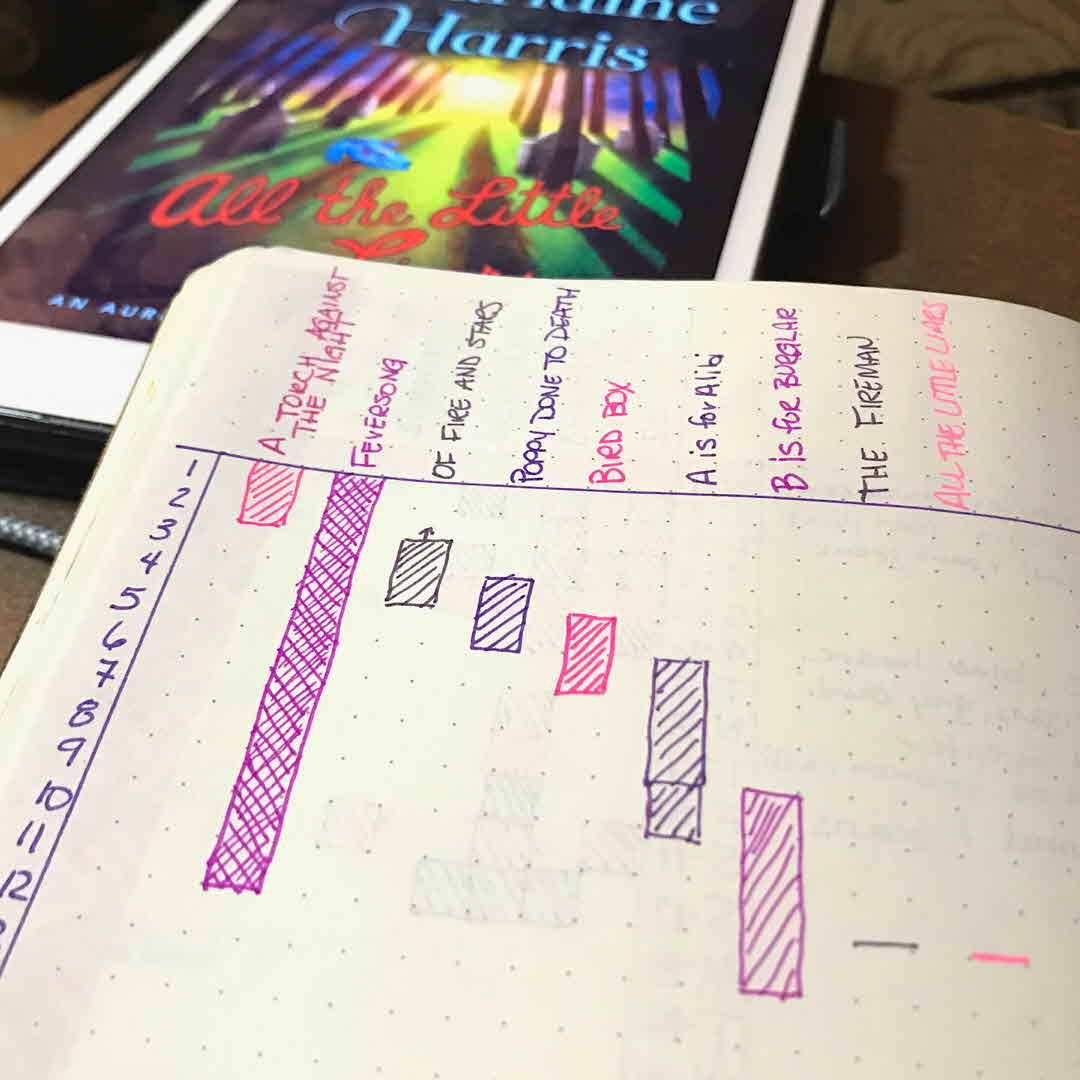 Harris
All the Little
AN
A TORCH AGAINST
THE NIGHT
FEVERSONG
OF FIRE AND STARS
POPPY DONE TO DEATH
BIRD BOX
A is for Alibi
B is for BURGLAR
THE FIREMAN
ALL THE LITTLE LIARS
1
2
3
4
5
6
7
8
9
10
11
12